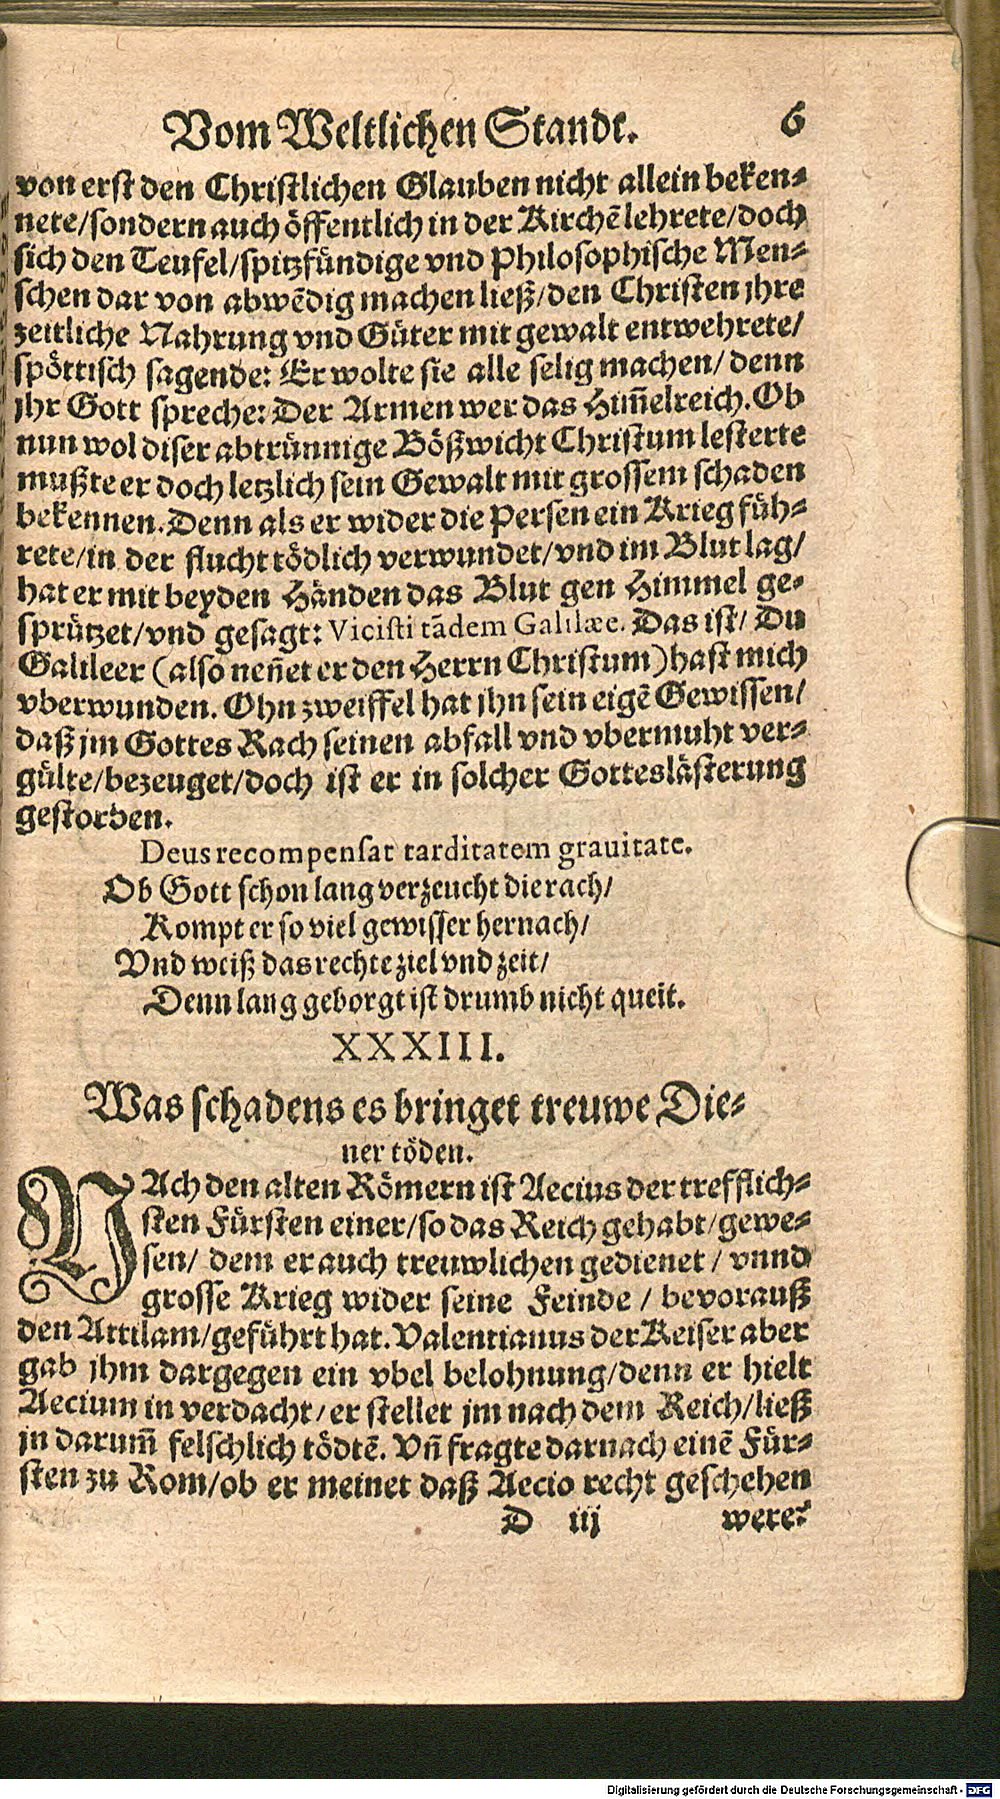 Vom Weltlichen Stande. 6
von erst den Christlichen Glauben nicht allein beken⸗
nete/sondern auch öffentlich in der Kirchẽ lehrete/doch
sich den Teufel/spitzfündige vnd Philosophische Men⸗
schen dar von abwẽdig machen ließ/den Christen jhre
zeitliche Nahrung vnd Güter mit gewalt entwehrete/
spöttisch sagende: Er wolte sie alle selig machen/ denn
jhr Gott spreche: Der Armen wer das Him̃elreich. Ob
nun wol diser abtrünnige Bößwicht Christum lesterte
mußte er doch letzlich sein Gewalt mit grossem schaden
bekennen. Denn als er wider die Persen ein Krieg füh⸗
rete/in der flucht tödlich verwundet/vnd im Blut lag/
hat er mit beyden Händen das Blut gen Himmel ge⸗
sprützet/vnd gesagt: Vicisti tãdem Galilæe. Das ist/ Du
Galileer (also neñet er den Herrn Christum) hast mich
vberwunden. Ohn zweiffel hat jhn sein eigẽ Gewissen/
daß jm Gottes Rach seinen abfall vnd vbermuht ver⸗
gülte/bezeuget/doch ist er in solcher Gotteslästerung
gestorben.
Deus recompensat tarditatem grauitate.
Ob Gott schon lang verzeucht die rach/
Kompt er so viel gewisser hernach/
Vnd weiß das rechte ziel vnd zeit/
Denn lang geborgt ist drumb nicht queit.
XXXIII.
Was schadens es bringet treuwe Die⸗
ner töden.
NAch den alten Römern ist Aecius der trefflich⸗
sten Fürsten einer/so das Reich gehabt/gewe⸗
sen/ dem er auch treuwlichen gedienet / vnnd
grosse Krieg wider seine Feinde / bevorauß
den Attilam/geführt hat. Valentianus der Keiser aber
gab jhm dargegen ein vbel belohnung/denn er hielt
Aecium in verdacht/er stellet jm nach dem Reich/ließ
jn darum̃ felschlich tödtẽ. Vñ fragte darnach einẽ Für⸗
sten zu Rom/ob er meinet daß Aecio recht geschehen
D iij were?
Digitalisierung gefördert durch die Deutsche Forschungsgemeinschaft - DFG